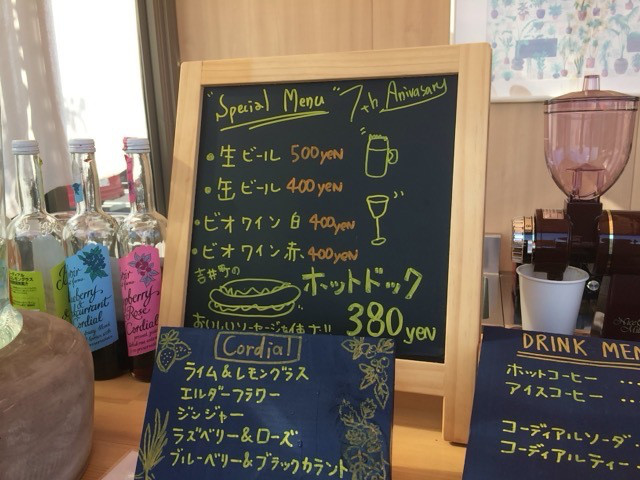 "Special Menu" 7th Anivasary
• 生ビール 500yen
• 缶ビール 400yen
• ビオワイン 白 400yen
• ビオワイン 赤 400yen
吉井町の
ホットドック
おいしいソーセージ
380yen
Cordial
ライム&レモングラス
エルダーフラワー
ジンジャー
ラズベリー&ローズ
ブルーベリー&ブラックカラント
DRINK MEN
ホットコーヒー ...
アイスコーヒー ...
コーディアルソーダ ..
コーディアルティー
Cordial
Rose
Cordial